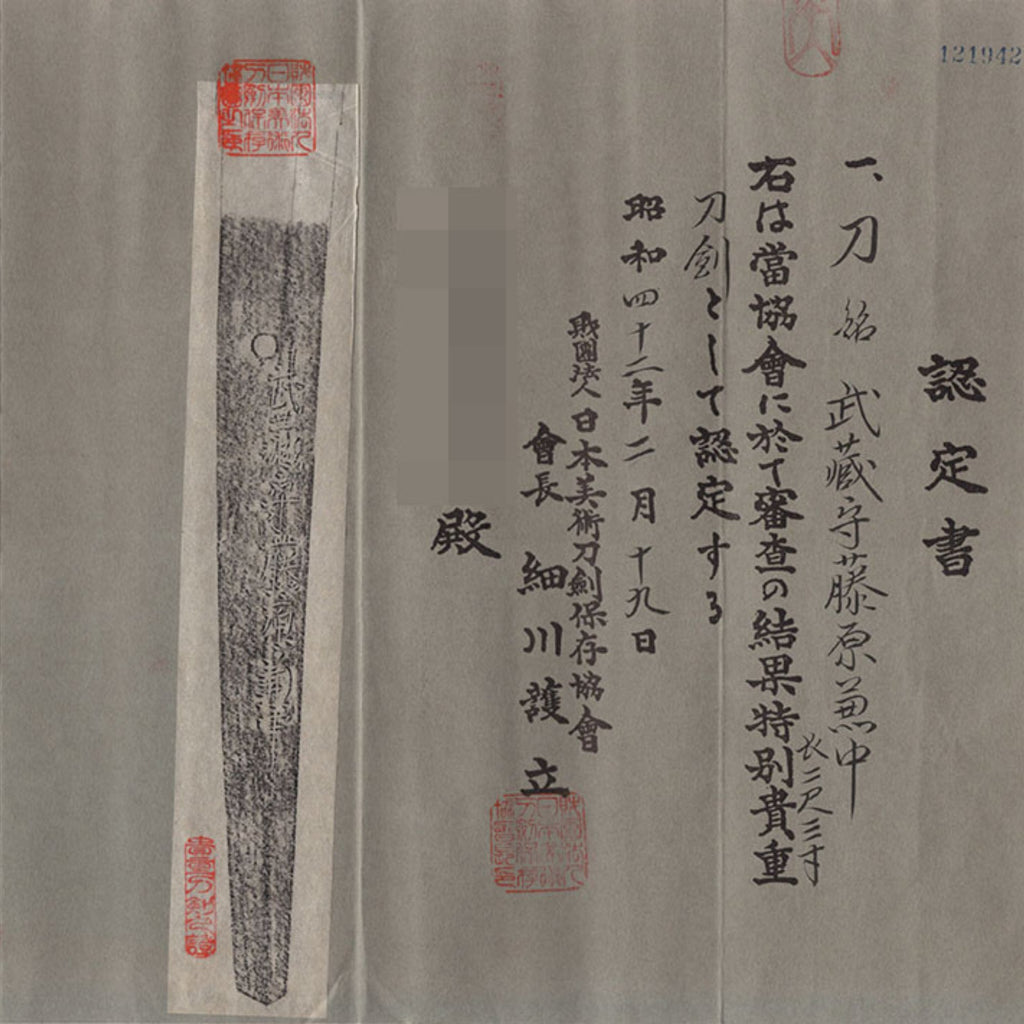 121942
認定書
一、刀 銘 武藏守藤原兼中
長二尺三寸
右は當協會に於て審査の結果特別貴重
刀劍として認定する
昭和四十二年二月十九日
財團法人日本美術刀劍保存協會
會長 細川護立
殿
武藏守藤原兼中